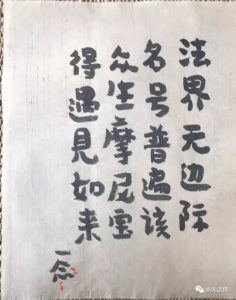 法界无边际
名号普遍该
众生摩尼宝
得遇见如来
一念